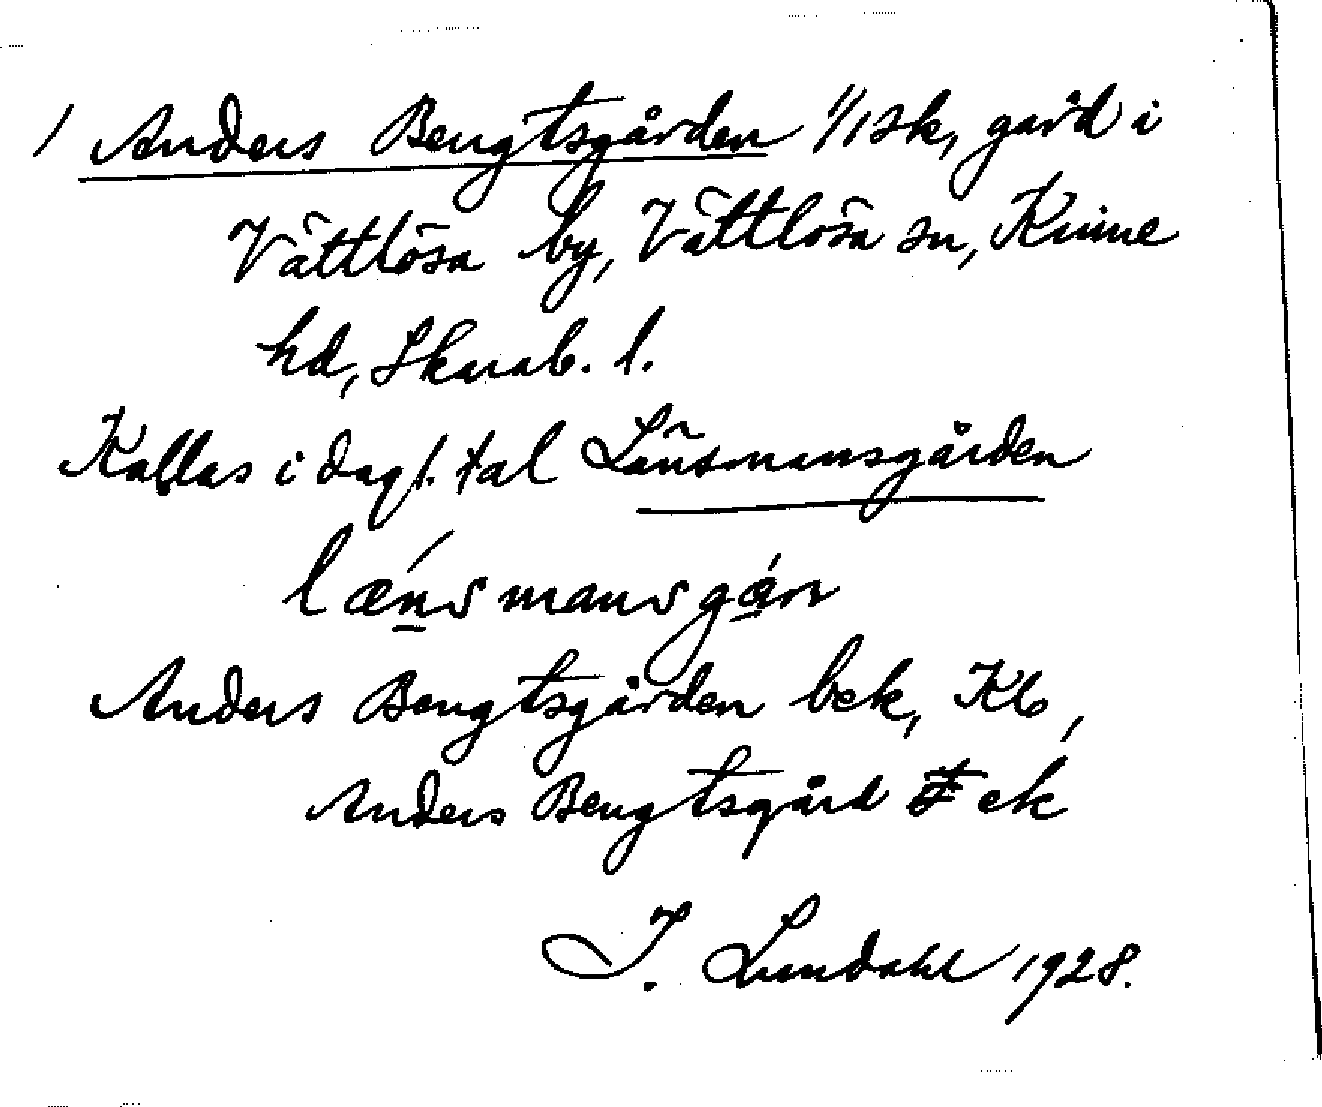 / Anders Bengtsgården 1/1 sk, gård i
Vättlösa by, Vättlösa sn, Kinne
hd, Skarab. l.
Kallas i dagl. tal Länsmansgården
lǽnsmansga̋rn
Anders Bengtsgården bek, Kb,
Anders Bengtsgård ek
I. Lundahl 1928.